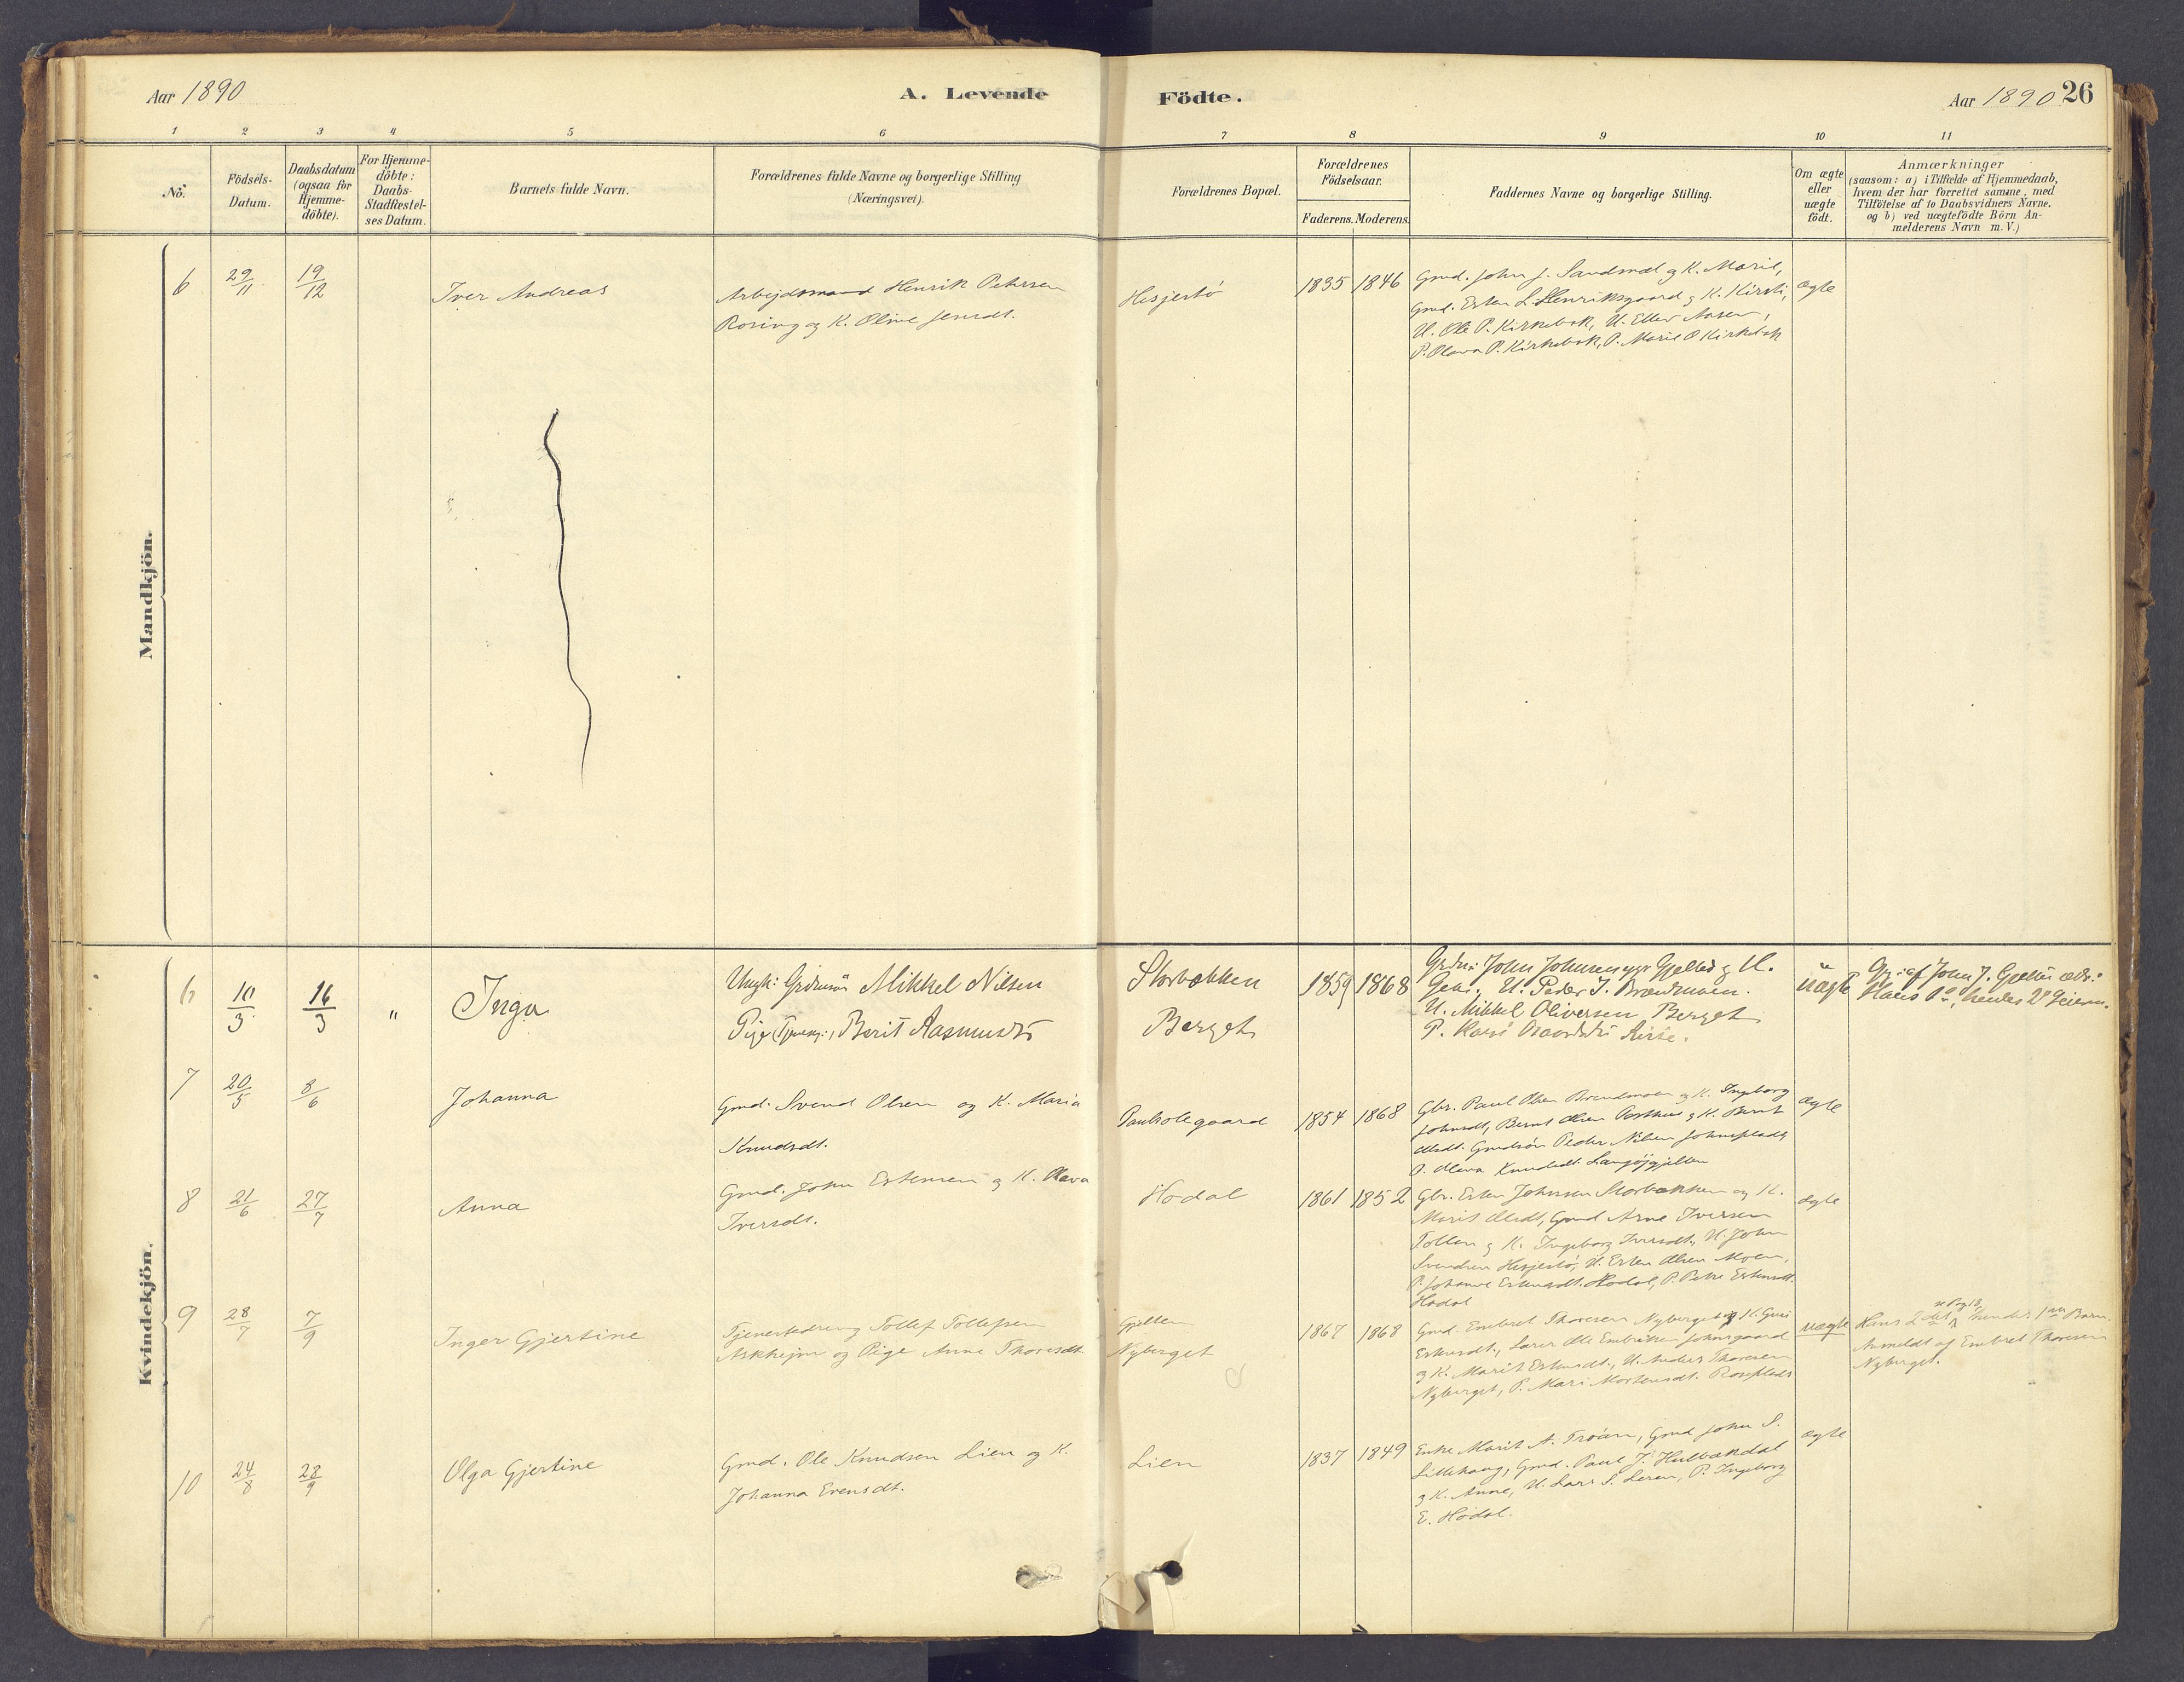 Aar 1890
A. Levende
Födte.
Aar 1890
26
1 2 3 4 5 6 7 8 9 10 11
Nö.
Födsels-
Datum.
Daabsdatum
(ogsaa for
Hjemme-
döbte).
For Hjemme-
döbte:
Daabs-
Stadfæstel-
ses Datum.
Barnets fulde Navn.
Forældrenes fulde Navne og borgerlige Stilling
(Næringsvei).
Forældrenes Bopæl.
Forældrenes
Födselsaar.
Faderens. Moderens.
Faddernes Navne og borgerlige Stilling.
Om ægte
eller
uægte
födt.
Anmærkninger
(saasom: a) i Tilfælde af Hjemmedaab,
hvem der har forrettet samme, med
Tilföielse af to Daabsvidners Navne.
og b) ved uægtefödte Börn An-
melderens Navn m.V.)
Mandkjön.
6 29/11 19/12 Iver Andreas
Arbejdsmand Henrik Petersen
Rosing og K. Oline Jensdt.
Hesjestö
1835 1846
Gmd. John J. Sandmæl og K. Marie,
Gmd. Esten L. Henriksgaard og K. Kirsti,
U. Ole P. Kirkebæk, U. Ellev Aasen,
P. Olava P. Kirkebæk, P. Marie O Kirkebæk
ægte
Kvindekjön.
6 10/3 16/3 " Inga
Ungk: Grdmsön Mikkel Nilsen
Pige Berit Rasmusdt
Storbækken
Berget
1859 1868
John Johnsen Gjelten
U. Peder J. Brændmoen.
U. Mikkel Oliversen Berget
P. Kari
uægte
af John J. Gjelten
Hans 1ste, hendes 2det
7 20/5 8/6 Johanna
Gmd. Svend Olsen og K. Maria
Knudsdt.
Paulsolegaard
1854 1868
Gbr. Paul Olsen Brændmoen og K. Ingeborg
Johnsdt, Bernt Olsen og K. Berit
Olsdt. Gmdsön Peder Nilsen Johnsplads,
P. Olava Knudsdt. Langöjgjelten
ægte
8 21/6 27/7 Anna
Gmd. John Estensen og K. Olava
Iversdt.
Hodal
1861 1852
Gbr. Esten Johnsen Storbækken og K.
Marit Olsdt, Gmd Arne Iversen
Tollan og K. Ingeborg Iversdt., U. John
Svendsen Hesjestö, U. Esten Olsen Moen,
P. Johanne Estensdt. Hodal, P. Petre Estensdt.
Hodal
ægte
9 28/7 7/9 Inger Gjertine
Tjenestedreng Tollef Tollefsen
Askhejm og Pige Anne Thoresdt
Gjelten
Nyberget
1867 1868
Gmd. Embret Thoresen Nyberget og K. Guri
Estensdt., Lærer Ole Embretsen Johnsgaard
og K. Marit Estensdt., U. Anders Thoresen
Nyberget, P. Mari Mortensdt. Rosplads
uægte
se Pag 18,
Hans 2det hendes 1ste Barn.
Anmeldt af Embret Thoresen
Nyberget.
10 24/8 28/9 Olga Gjertine
Gmd. Ole Knudsen Lien og K.
Johanna Evensdt.
Lien
1837 1849
Enke Marit A. Tröan, Gmd John S.
Lillehaug, Gmd. Paul J. Hulbækdal
og K. Anne, U. Lars S. Leren, P. Ingeborg
E. Hodal.
ægte